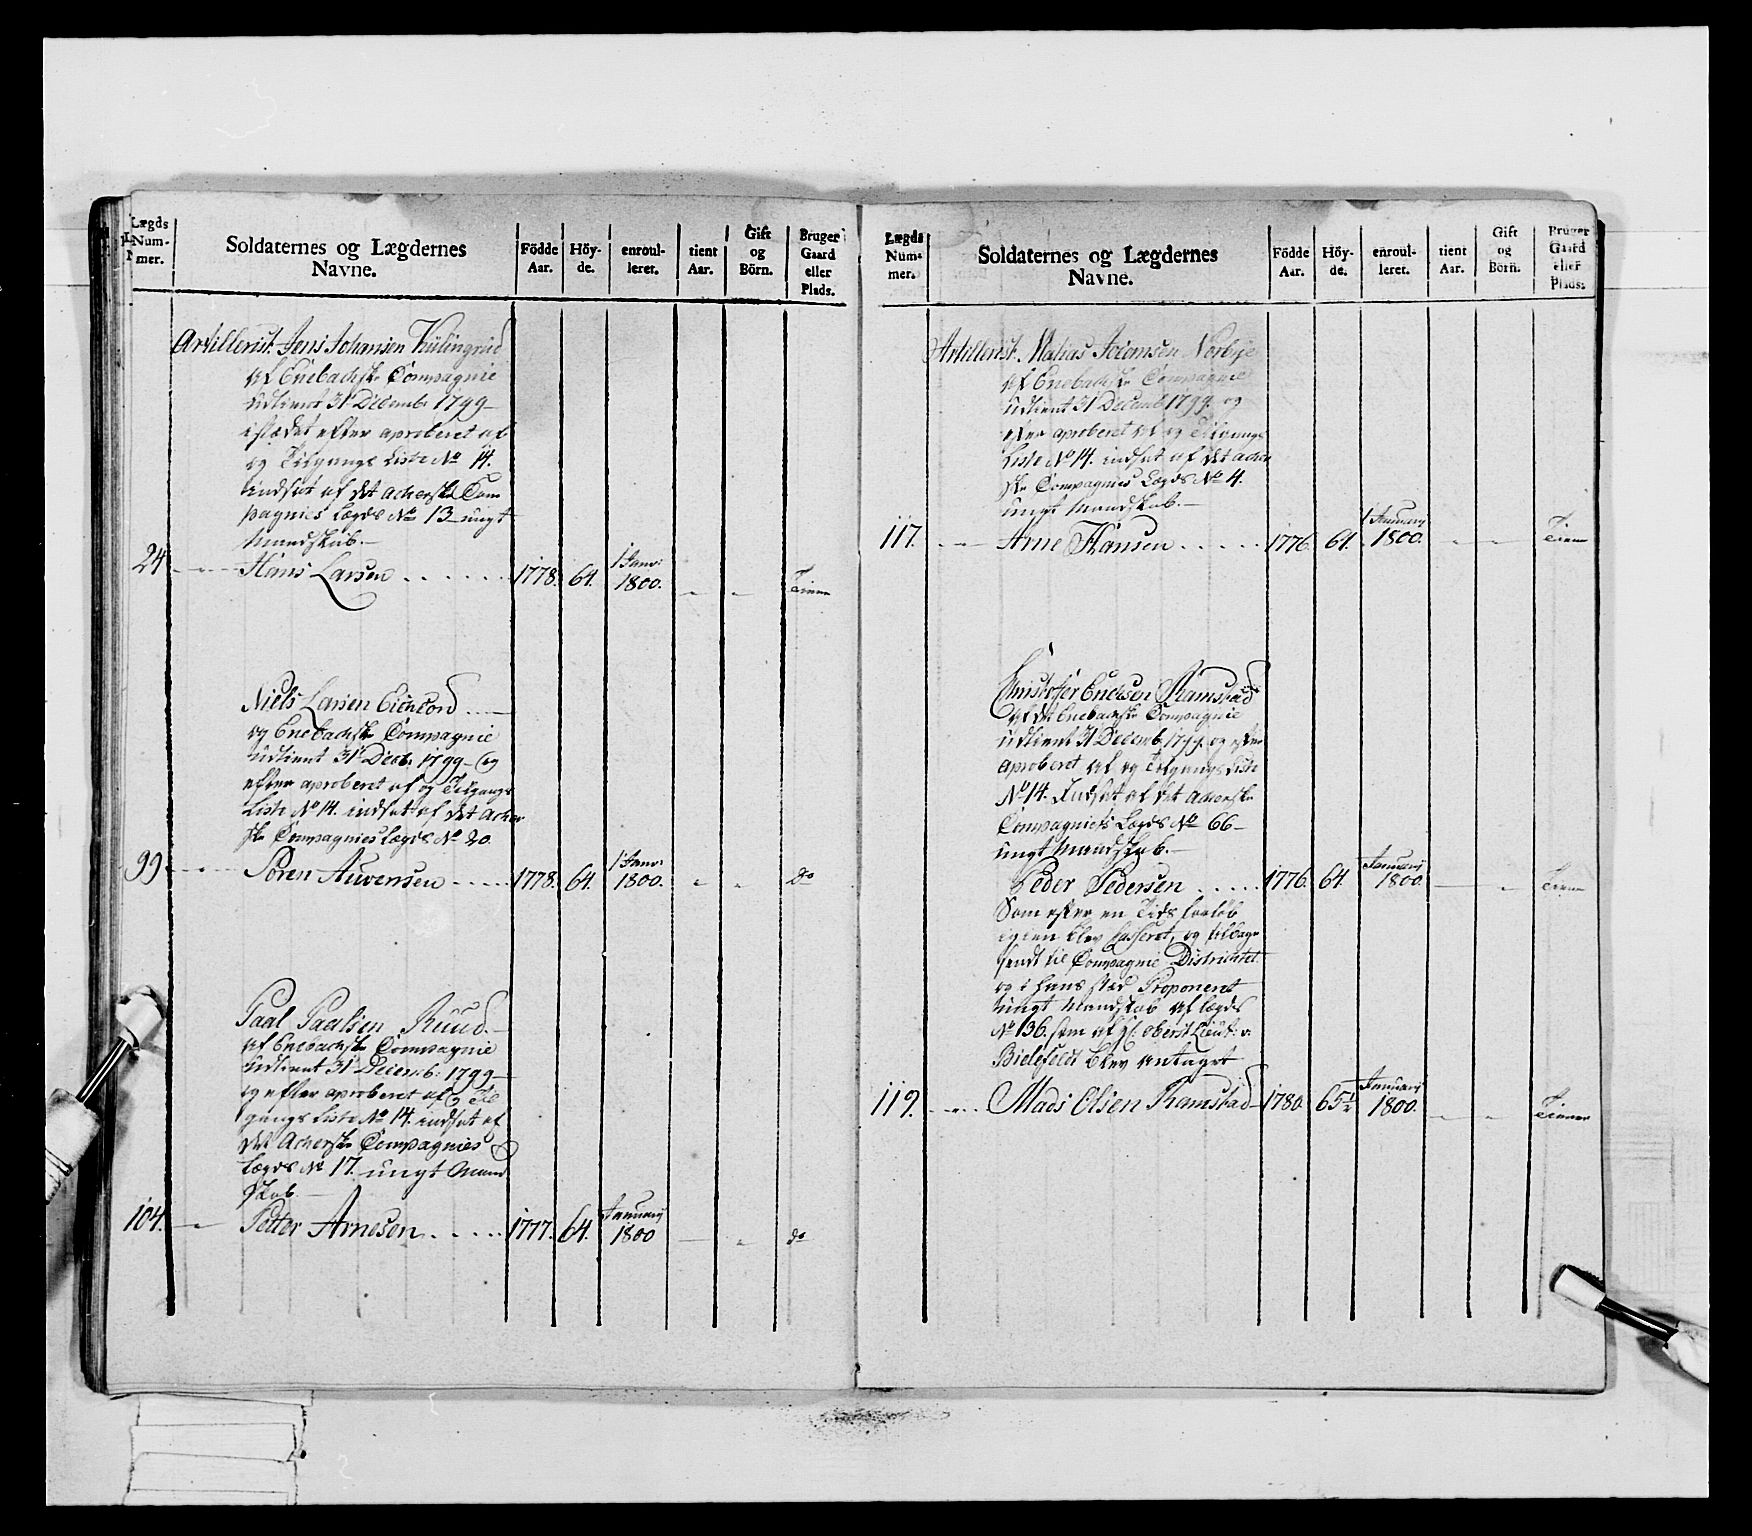 Lægds Num- mer.
Soldaternes og Lægdernes Navne.
Födde Aar.
Höy- de.
enroul- leret.
tient Aar.
Gift og Börn.
Bruger Gaard eller Plads.
Artillerist. Jens Johansen
af Enebachske Compagnie
udtient 31 Decemb: 1799
istædet efter aproberet af
og Tilgangs Liste No 14.
indsat af det Acherske Com
pagnies Lægds No 13 ungt
Mandskab.
24 Hans Larsen 1778. 64. 1 Janv: 1800. Tiener
Niels Larsen
og Enebachske Compagnie
udtient 31 Decb: 1799 og
efter aproberet af og Tilgangs
Liste No 14. indsat af det Acher
ske Compagnies Lægds No 20.
99 Sören Auvensen 1778. 64. 1 Janv: 1800. do
Paal Paalsen Ruud.
af Enebachske Compagnie
udtient 31 Decemb: 1799
og efter aproberet af og Til
gangs Liste No 14. indsat af
det Acherske Compagnies
Lægds No 17. ungt Mand
skab
104. Petter Arnesen 1777. 64. Januarij 1800 do
Lægds Num- mer.
Soldaternes og Lægdernes Navne.
Födde Aar.
Höy- de.
enroul- leret.
tient Aar.
Gift og Börn.
Bruger Gaard eller Plads.
Artillerist. Matias Norbye
af Enebachske Compagnie
udtient 31 Decemb 1799. og
efter aproberet af og Tilgangs
Liste No 14. indsat af det Acher
ske Compagnies Lægds No 4.
ungt Mandskab.
117. Arne Hansen 1776. 64. 1 Januarij 1800. Tiener
Christofer Ramstad
af det Enebachske Compagnie
udtient 31 Decemb 1799. og efter
aproberet af og Tilgangs Liste
No 14. Indsat af det Acherske
Compagnies Lægds No 66
ungt Mandskab.
Peder Pedersen 1776. 64 Januarij 1800. Tiener
Som efter en Tids forlöb
igien blev Casseret, og tilbage
sendt til Compagnie Districtet
og i hans sted Proponeret
ungt Mandskab af Lægds
No 136. som af Hr. Oberst Lieut: v.
Bielefeldt blev antaget
119. Mads Olsen Ramstad 1780. 65½ Januarij 1800. Tiener